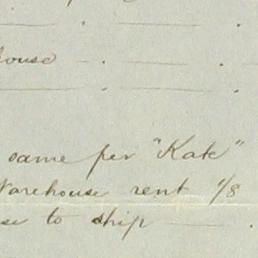 ouse
same per "Kate"
Warehouse rent 1/8
se to ship